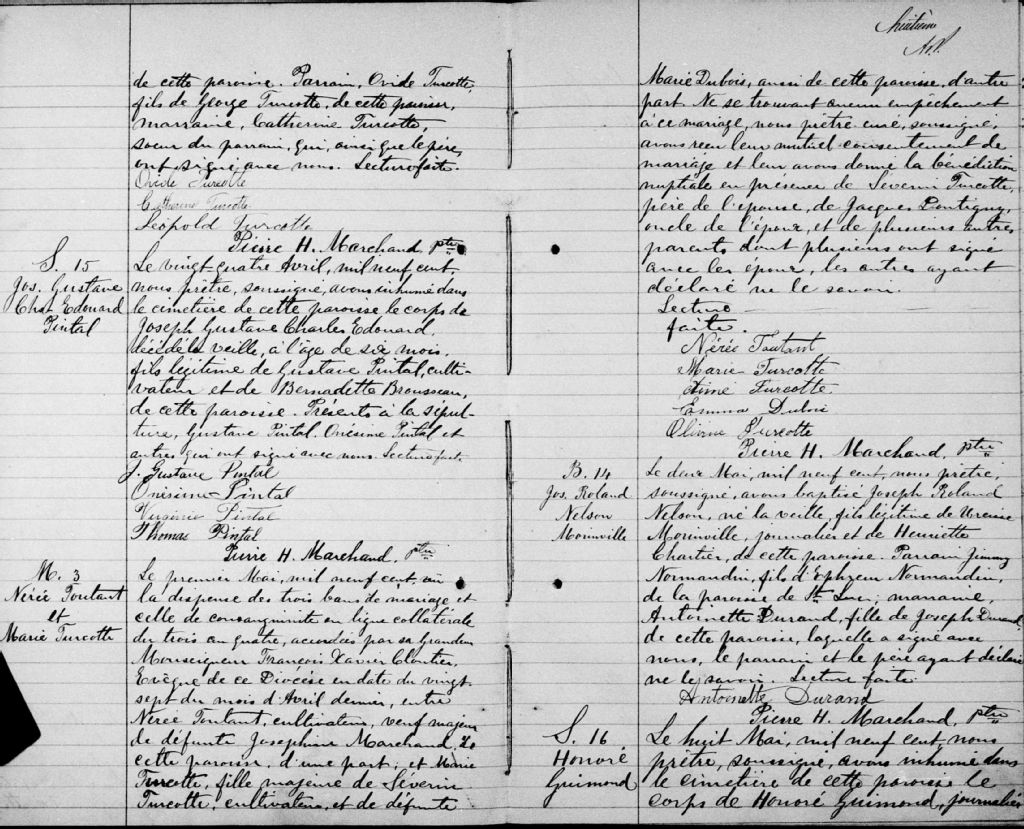 de cette paroisse. Parrain, Ovide Turcotte,
fils de George Turcotte, de cette paroisse,
marraine, Catherine Turcotte,
soeur du parrain, qui, ainsi que le père,
ont signé avec nous. Lecture faite.
Ovide Turcotte
Catherine Turcotte
Léopold Turcotte
Pierre H. Marchand, ptre
S. 15
Jos. Gustave
Chs Edouard
Pintal
Le vingt quatre Avril, mil neuf cent,
nous prêtre, soussigné, avons inhumé dans
le cimetière de cette paroisse le corps de
Joseph Gustave Charles Edouard,
décédé la veille, à l'âge de six mois,
fils légitime de Gustave Pintal, culti-
vateur et de Bernadette Brousseau,
de cette paroisse. Présents à la sépul-
ture, Gustave Pintal, Onésime Pintal et
autres qui ont signé avec nous. Lecture faite
J. Gustave Pintal
Onésime Pintal
Virginie Pintal
Thomas Pintal
Pierre H. Marchand, ptre
M. 3
Nérée Toutant
et
Marie Turcotte
Le premier Mai, mil neuf cent, vu
la dispense des trois bans de mariage et
celle de consanguinité en ligne collatérale
du trois au quatre, accordées par sa Grandeur
Monseigneur François Xavier Cloutier,
Evêque de ce Diocèse en date du vingt
sept du mois d'Avril dernier, entre
Nérée Toutant, cultivateur, veuf majeur
de défunte Josephine Marchand, de
cette paroisse, d'une part; et Marie
Turcotte, fille majeure de Séverin
Turcotte, cultivateur, et de défunte
huitième
Marie Dubois, aussi de cette paroisse, d'autre
part. Ne se trouvant aucun empêchement
à ce mariage, nous prêtre curé, soussigné,
avons reçu leur mutuel consentement de
mariage et leur avons donné la bénédiction
nuptiale en présence de Séverin Turcotte,
père de l'épouse, de Jacques Pontigny,
oncle de l'époux, et de plusieurs autres
parents dont plusieurs ont signé
avec les époux, les autres ayant
déclaré ne le savoir.
Lecture
faite.
Nérée Toutant
Marie Turcotte
Aimé Turcotte
Emma Dubois
Olivine Turcotte
Pierre H. Marchand, ptre
B. 14
Jos. Roland
Nelson
Morinville
Le deux Mai, mil neuf cent, nous prêtre,
soussigné, avons baptisé Joseph Roland
Nelson, né la veille, fils légitime de
Morinville, journalier et de Henriette
Chartier, de cette paroisse. Parrain Jimmy
Normandin, fils d'Ephrem Normandin,
de la paroisse de St. Luc; marraine,
Antoinette Durand, fille de Joseph Durand,
de cette paroisse, laquelle a signé avec
nous, le parrain et le père ayant déclaré
ne le savoir. Lecture faite
Antoinette Durand
Pierre H. Marchand, ptre
S. 16
Honoré
Guimond
Le huit Mai, mil neuf cent, nous
prêtre, soussigné, avons inhumé dans
le cimetière de cette paroisse le
corps de Honoré Guimond, journalier